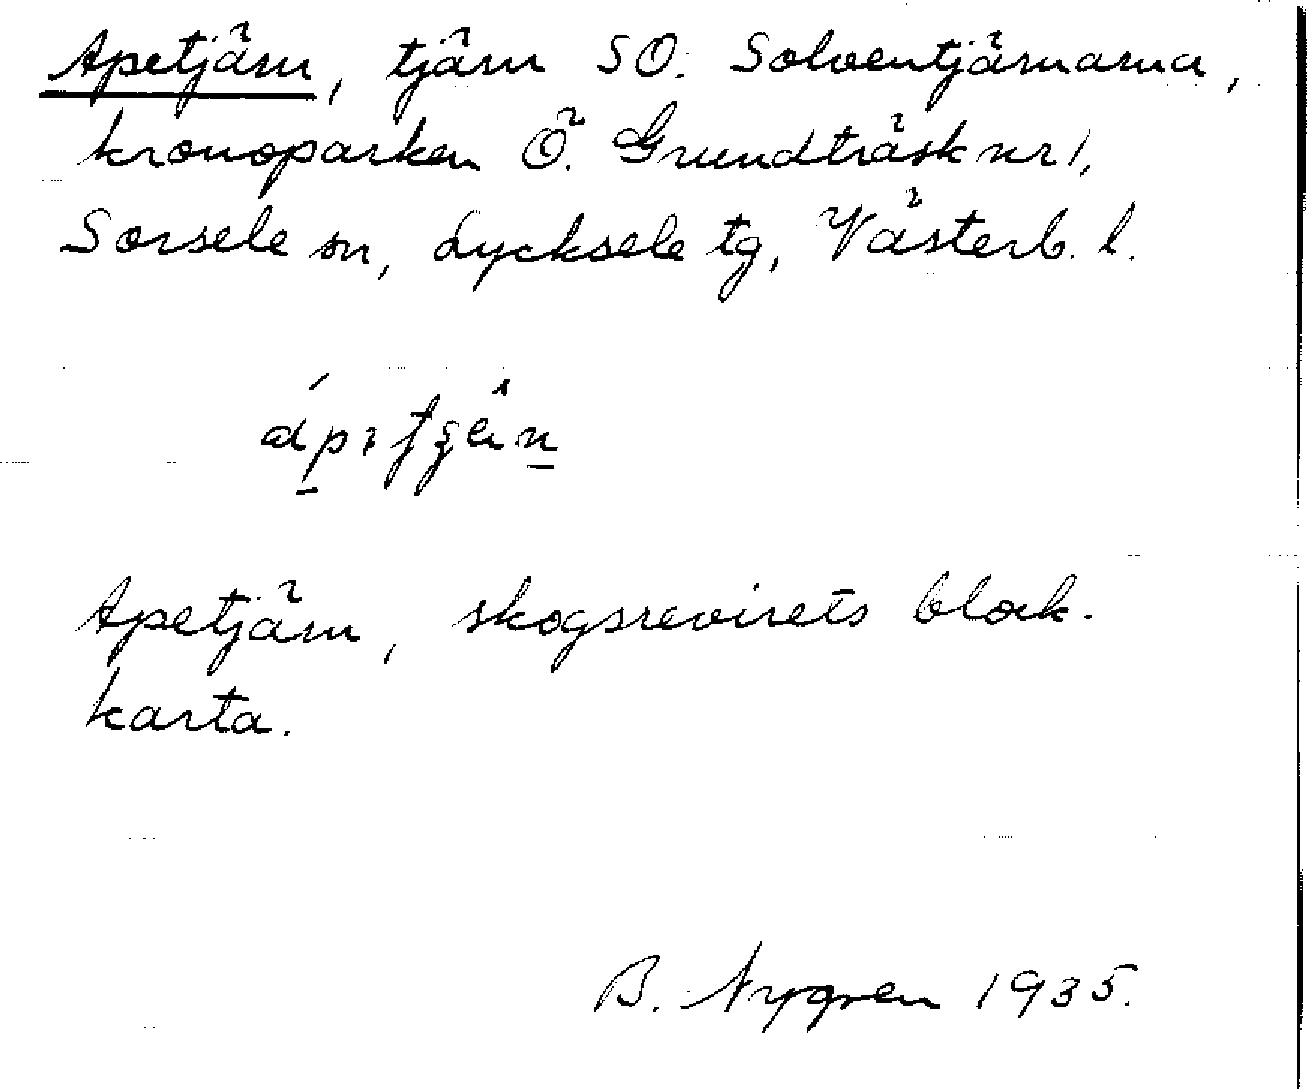 Apetjärn, tjärn SO. Solventjärnarna,
kronoparken Ö. Grundträsk nr 1,
Sorsele sn, Lycksele tg, Västerb. l.
Apetjärn, skogsrevirets block-
karta.
B. Nygren 1935.